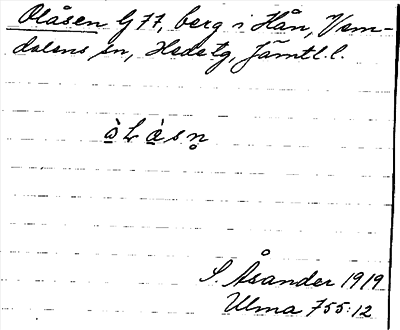 Olåsen G 77, berg i Hån, Vem-
dalens sn, Hede tg, Jämtl. l.
å̀ L å̀ s n̥
S. Åsander 1919
Ulma 755:12